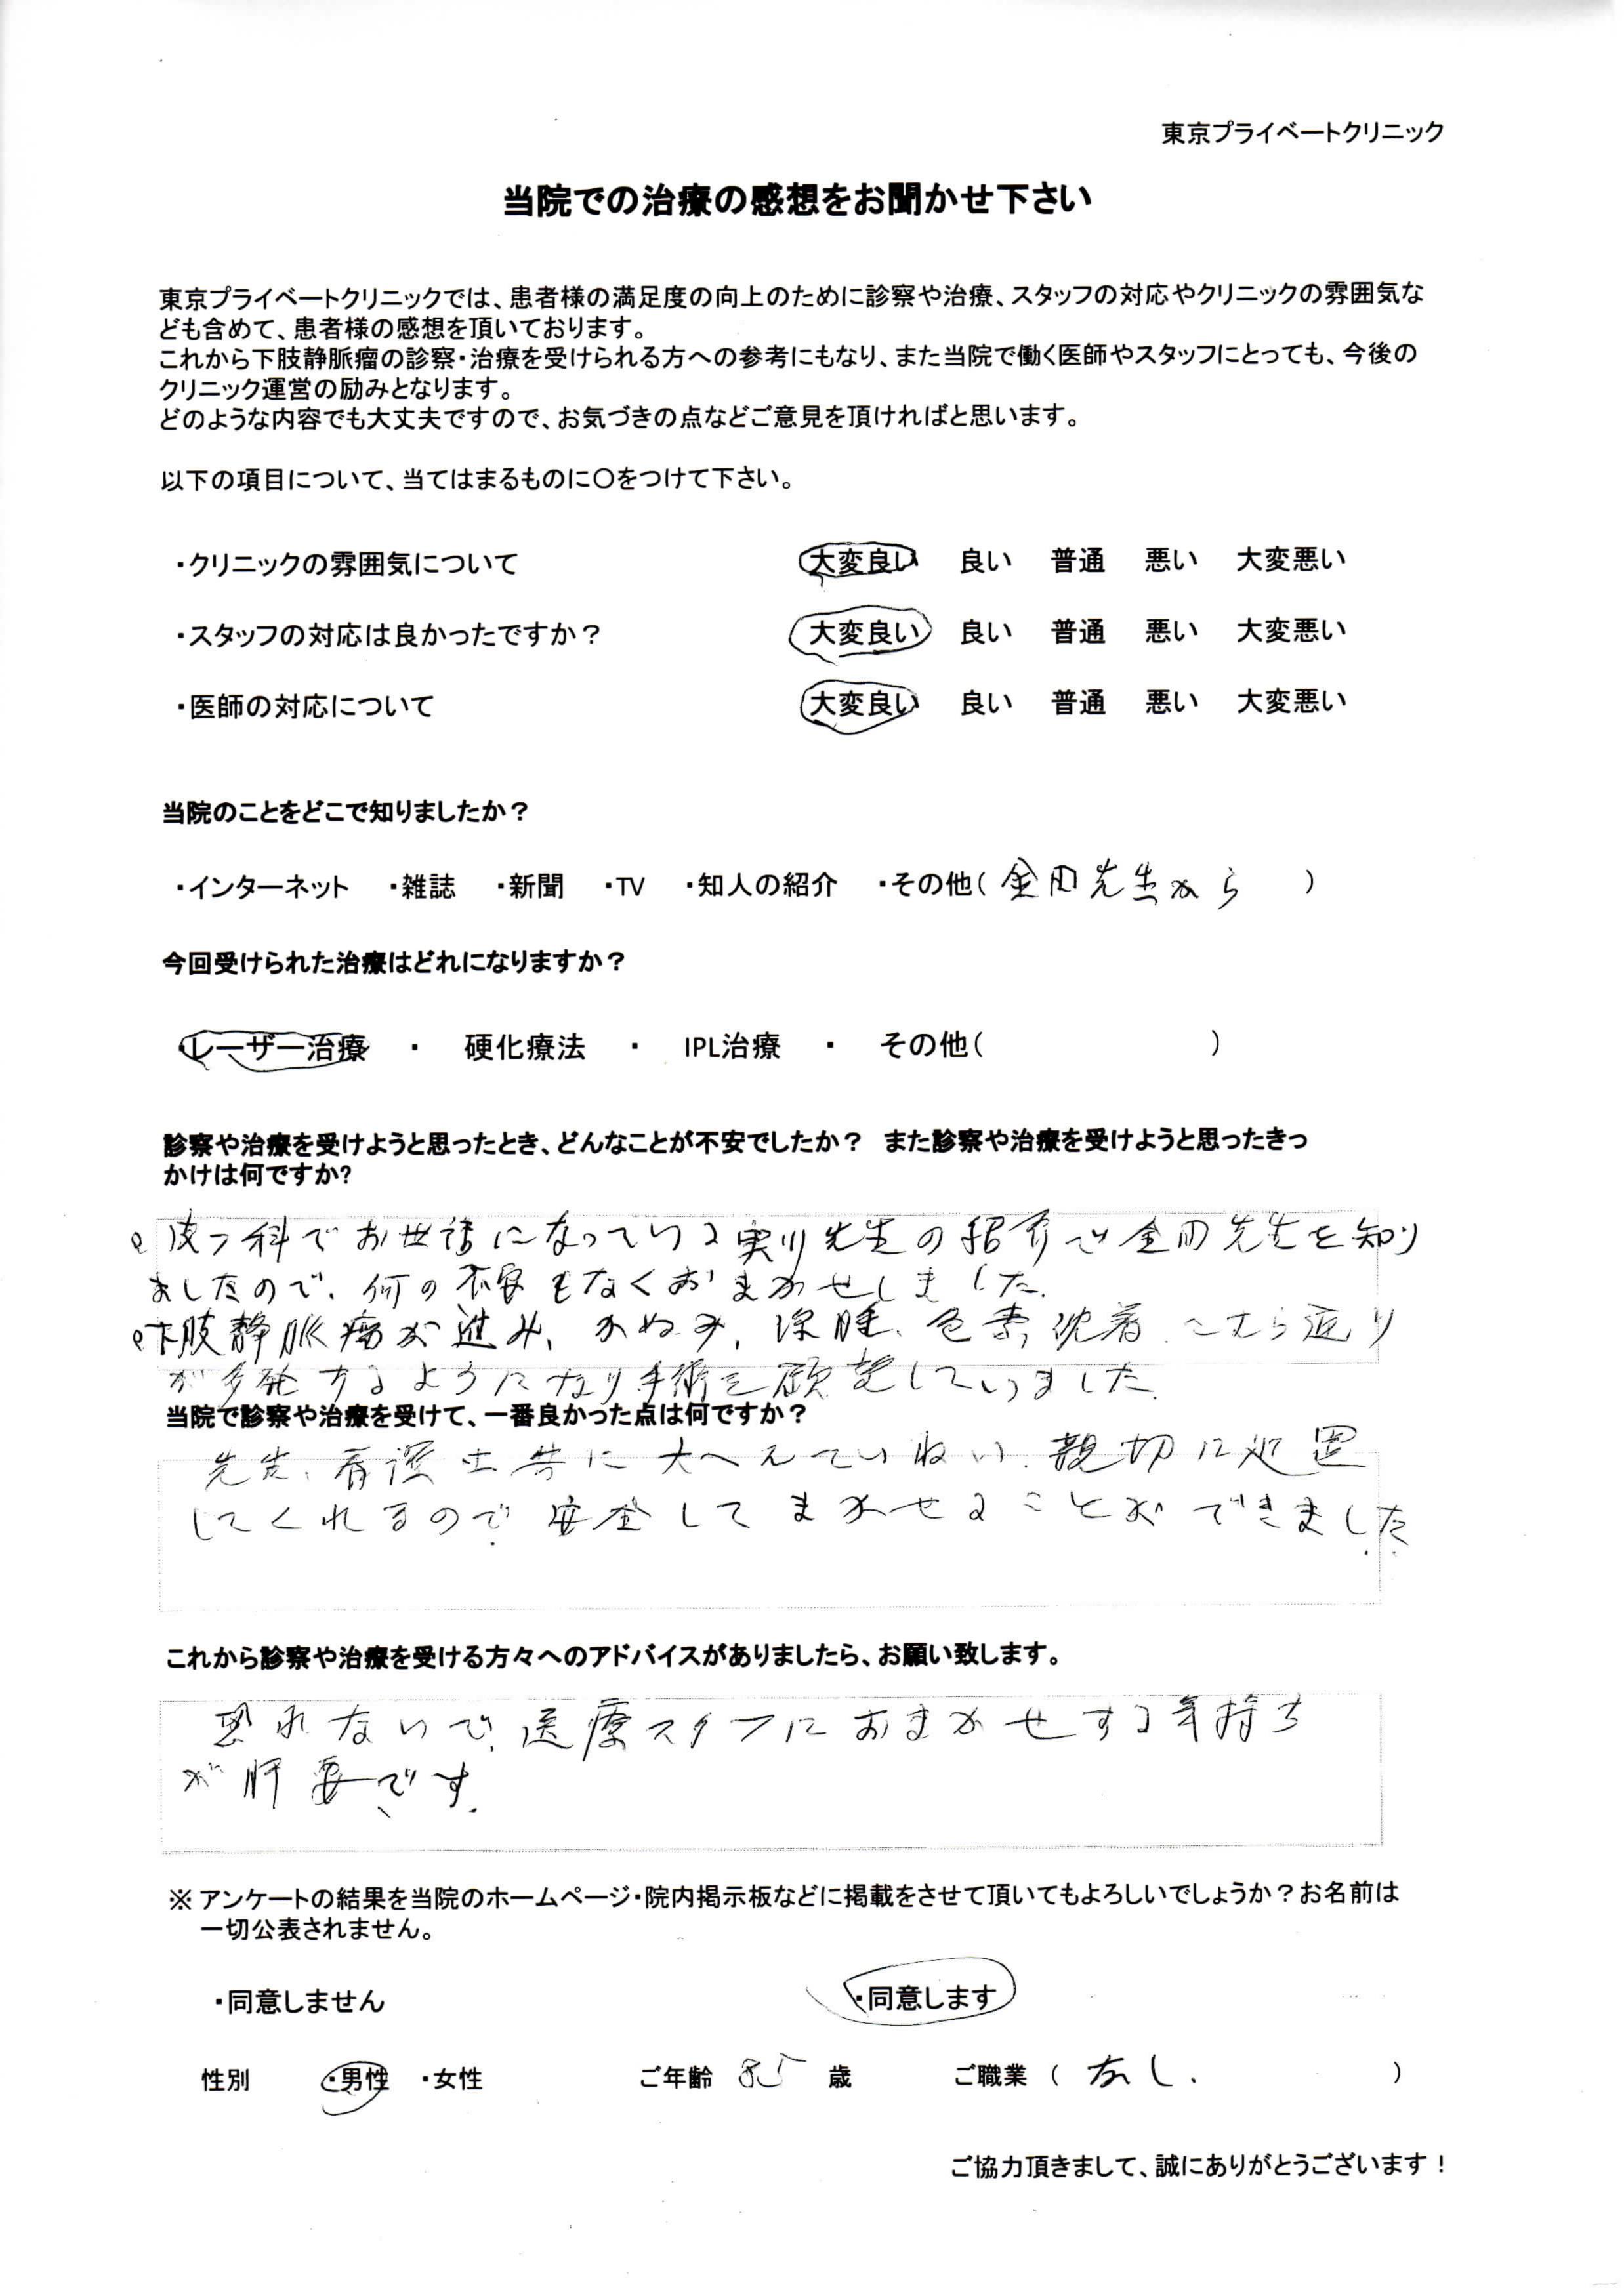 東京プライベートクリニック
当院での治療の感想をお聞かせ下さい
東京プライベートクリニックでは、患者様の満足度の向上のために診察や治療、スタッフの対応やクリニックの雰囲気な
ども含めて、患者様の感想を頂いております。
これから下肢静脈瘤の診察・治療を受けられる方への参考にもなり、また当院で働く医師やスタッフにとっても、今後の
クリニック運営の励みとなります。
どのような内容でも大丈夫ですので、お気づきの点などご意見を頂ければと思います。
以下の項目について、当てはまるものに〇をつけて下さい。
・クリニックの雰囲気について 大変良い 良い 普通 悪い 大変悪い
・スタッフの対応は良かったですか？ 大変良い 良い 普通 悪い 大変悪い
・医師の対応について 大変良い 良い 普通 悪い 大変悪い
当院のことをどこで知りましたか？
・インターネット ・雑誌 ・新聞 ・TV ・知人の紹介 ・その他( 金田先生から )
今回受けられた治療はどれになりますか？
・レーザー治療 ・ 硬化療法 ・ IPL治療 ・ その他( )
診察や治療を受けようと思ったとき、どんなことが不安でしたか？ また診察や治療を受けようと思ったきっ
かけは何ですか?
皮フ科でお世話になっている 先生の紹介で金田先生を知り
ましたので、何の不安もなくおまかせしました.
下肢静脈瘤が進み、かゆみ, 浮腫、色素沈着、こむら返り
が多発するようになり手術を していました.
当院で診察や治療を受けて、一番良かった点は何ですか？
先生、看護士共に大へんていねい、親切に処置
してくれるので安全してまかせることができました.
これから診察や治療を受ける方々へのアドバイスがありましたら、お願い致します。
恐れないで、医療スタフにおまかせする気持ち
が肝要です.
※ アンケートの結果を当院のホームページ・院内掲示板などに掲載をさせて頂いてもよろしいでしょうか？お名前は
一切公表されません。
・同意しません ・同意します
性別 ・男性 ・女性 ご年齢 85 歳 ご職業 ( なし. )
ご協力頂きまして、誠にありがとうございます！